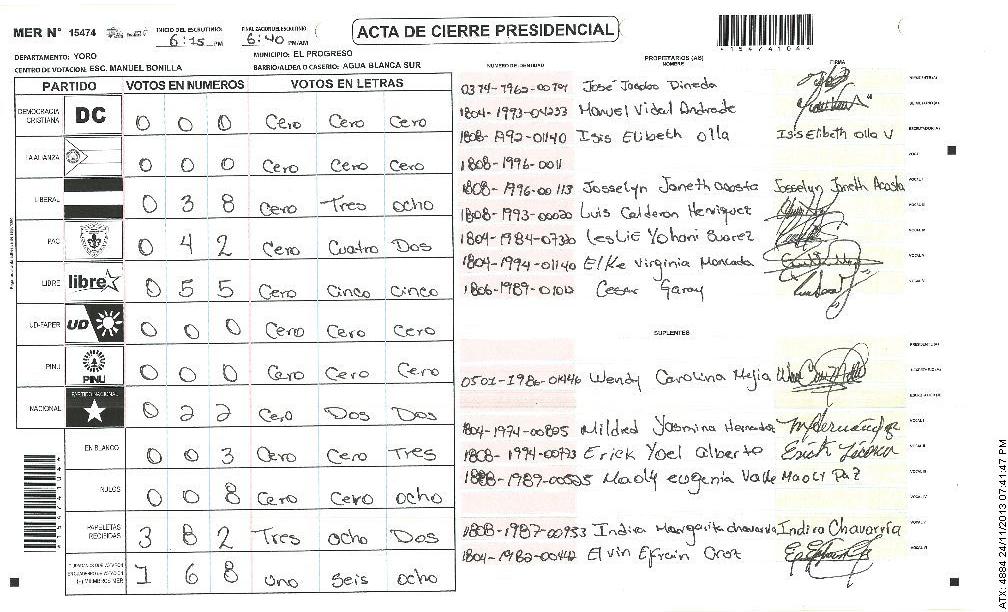 MER N° 15474
INICIO DEL ESCRUTINIO: 6:15 PM
FINALIZACION DEL ESCRUTINIO 6:40 PM/AM
ACTA DE CIERRE PRESIDENCIAL
DEPARTAMENTO: YORO
MUNICIPIO: EL PROGRESO
CENTRO DE VOTACION: ESC. MANUEL BONILLA
BARRIO/ALDEA O CASERIO: AGUA BLANCA SUR
PARTIDO VOTOS EN NUMEROS VOTOS EN LETRAS
DEMOCRACIA CRISTIANA DC 0 0 0 Cero Cero Cero
LA ALIANZA 0 0 0 Cero Cero Cero
LIBERAL 0 3 8 Cero Tres ocho
PAC 0 4 2 Cero Cuatro Dos
LIBRE libre 0 5 5 Cero Cinco Cinco
UD-FAPER UD 0 0 0 Cero Cero Cero
PINU PINU 0 0 0 Cero Cero Cero
NACIONAL PARTIDO NACIONAL 0 2 2 Cero Dos Dos
EN BLANCO 0 0 3 Cero Cero Tres
NULOS 0 0 8 Cero Cero ocho
PAPELETAS RECIBIDAS 3 8 2 Tres ocho Dos
1 6 8 uno seis ocho
NUMERO DE IDENTIDAD
PROPIETARIOS (AS)
NOMBRE
FIRMA
José
Manuel Vidal Andrade
Isis Elibeth olla Isis Elibeth olla V
1808-1996-0011
1808-1996-00113 Josselyn Janeth acosta Josselyn Janeth Acosta
1808-1993-00020 Luis Calderon Henriquez
Leslie Yohani Suarez
1804-1994-01140 Elke Virginia Moncada
Cesar Garay
SUPLENTES
0501-1986-01446 Wendy Carolina Mejia
Mildred Yasmina
Erick Yoel alberto Erick
eugenia Valle
Indira Margarita chavarria Indira Chavarría
Elvin Efrain
ATX: 4884 24/11/2013 07:41:47 PM